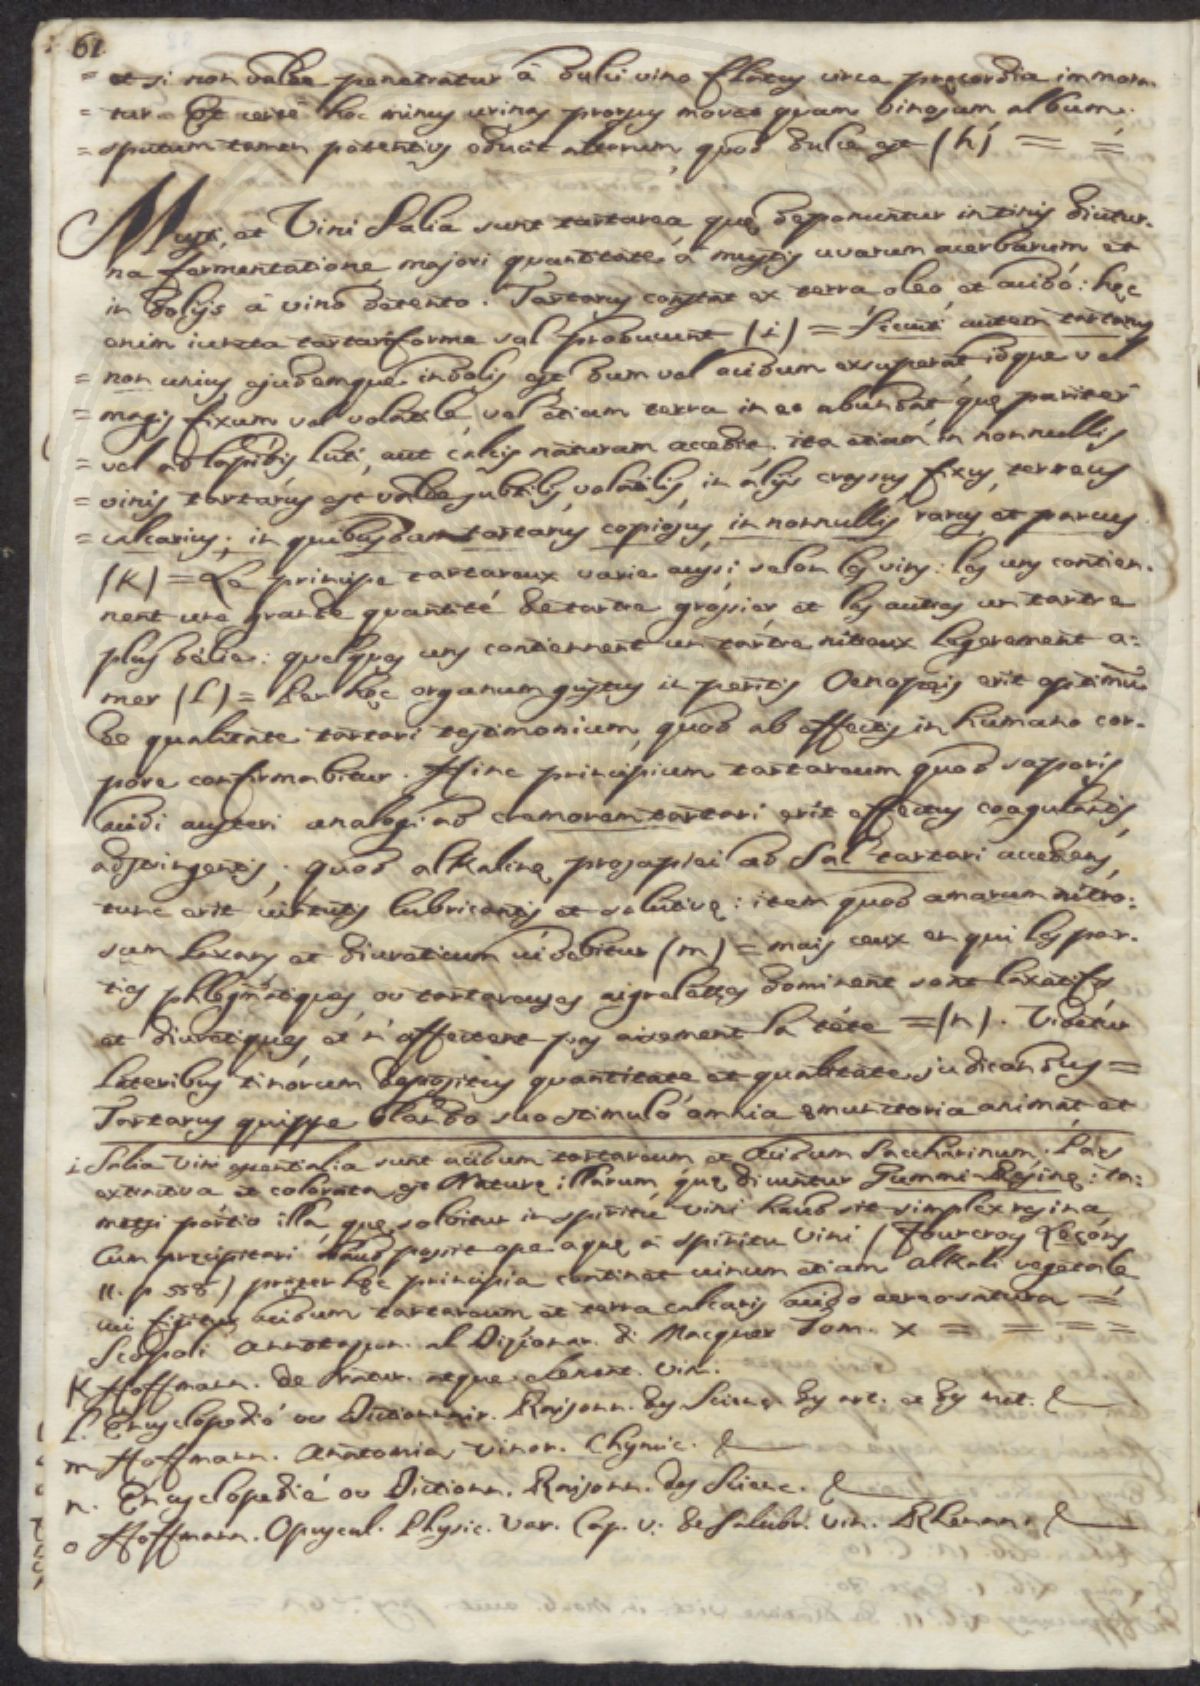 61
= et si non valde penetratur â dulci vino flatus circa pręcordia immora-
= tur. Et certè hoc minus urinas prorsus movet quam vinosum album:
= sputum tamen potentius educit alterum, quod dulce est (h) = =
Musti, et Vini Salia sunt tartarea quę deponuntur in tinis diutur-
na fermentatione majori quantitate â mustis uvarum acerbarum et
in dolijs â vino detento. Tartarus constat ex terra oleo, et acido: hęc
enim iuncta tartariforme sal producunt (i) = Sicuti autem tartarus
= non unius ejusdemque indolis est, dum vel acidum exsuperat, idque vel
= magis fixum vel volatile, vel etiam terra in eo abundat, quę pariter
= vel ad lapidis luti, aut calcis naturam accedit; ita etiam in nonnullis
= vinis tartarus est valde subtilis, volatilis, in alijs crassus fixus, terreus
= calcarius; in quibusdam tartarus copiosus, in nonnullis rarus et parcus
(K) = Le principe tartareux varie aussi selon les vins: les uns contien-
nent une grande quantité de tartre grossier, et les autres un tartre
plus délié: quelques uns contiennent un tartre nitreux legerement a-
mer (L) = Per hęc organum gustus in peritis Oenoptis erit optimũ
de qualitate tartari testimonium, quod ab effectis in humano cor-
pore confirmabitur. Hinc principium tartareum quod saporis
acidi austeri analogi ad cremorem tartari erit effectus coagulantis,
adstringentis; quod alkalinę prosapiei ad Sal tartari accedens,
tunc erit virtutis lubricantis et solutivę: item quod amarum nitro-
sum laxans et diureticum videbitur (m) = mais ceux en qui les par-
ties phlegmatiques, ou tartareuses aigrelettes dominent sont laxatifs
et diuretiques et n'affectent pas aisement la tête = (n). Videtur
lateribus tinarum depositus quantitate et qualitate judicandus =
Tartarus quippe blando suo stimulo omnia emunctoria animat et
i Salia Vini essentialia sunt acidum tartareum et Acidum Saccharinum. Pars
extractiva et colorata est Naturę illarum, quę dicuntur Gummi-Resinę: ta-
metsi portio illa, quę solvitur in spiritu vini haud sit simplex resina
cum precipitari haud possit ope aquę â spiritu Vini (Fourcroy Leçons
11. p. 558) pręter hęc principia continet vinum etiam Alkali vegetale
cui figitur acidum tartareum et terra calcaris acido aereo satura =
Scopoli Annotazion. al Dizionar. di Macquer Tom. X = = = =
K Hoffmann. de Natur. atque element. Vin.
L. Encyclopedié ou Dictionnair. Raisonn. des Scienc. des art. et des met.
m Hoffmann. Anatomia Vinor. Chymic.
n. Encyclopedié ou Dictionn. Raisonn. des Scienc.
o Hoffmann. Opuscul. Physic. Var. Cap. V. de Salubr. Vin. Rhenan.